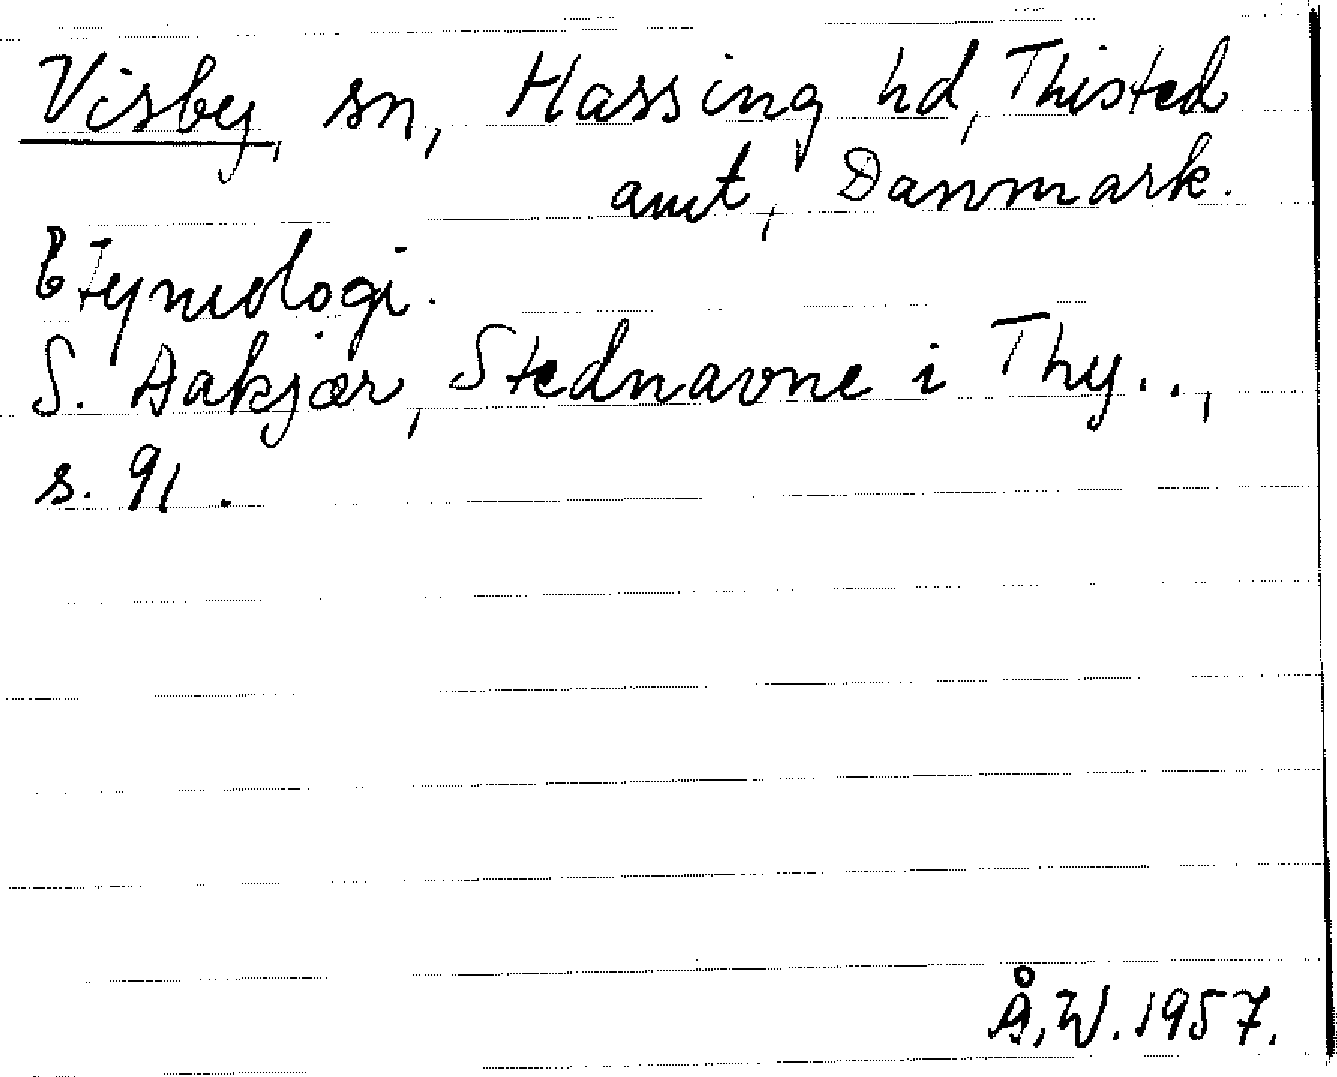 Visby, sn, Hassing hd, Thisted
amt, Danmark.
Etymologi.
S. Aakjær, Stednavne i Thy..,
s. 91.
Å.W. 1957.